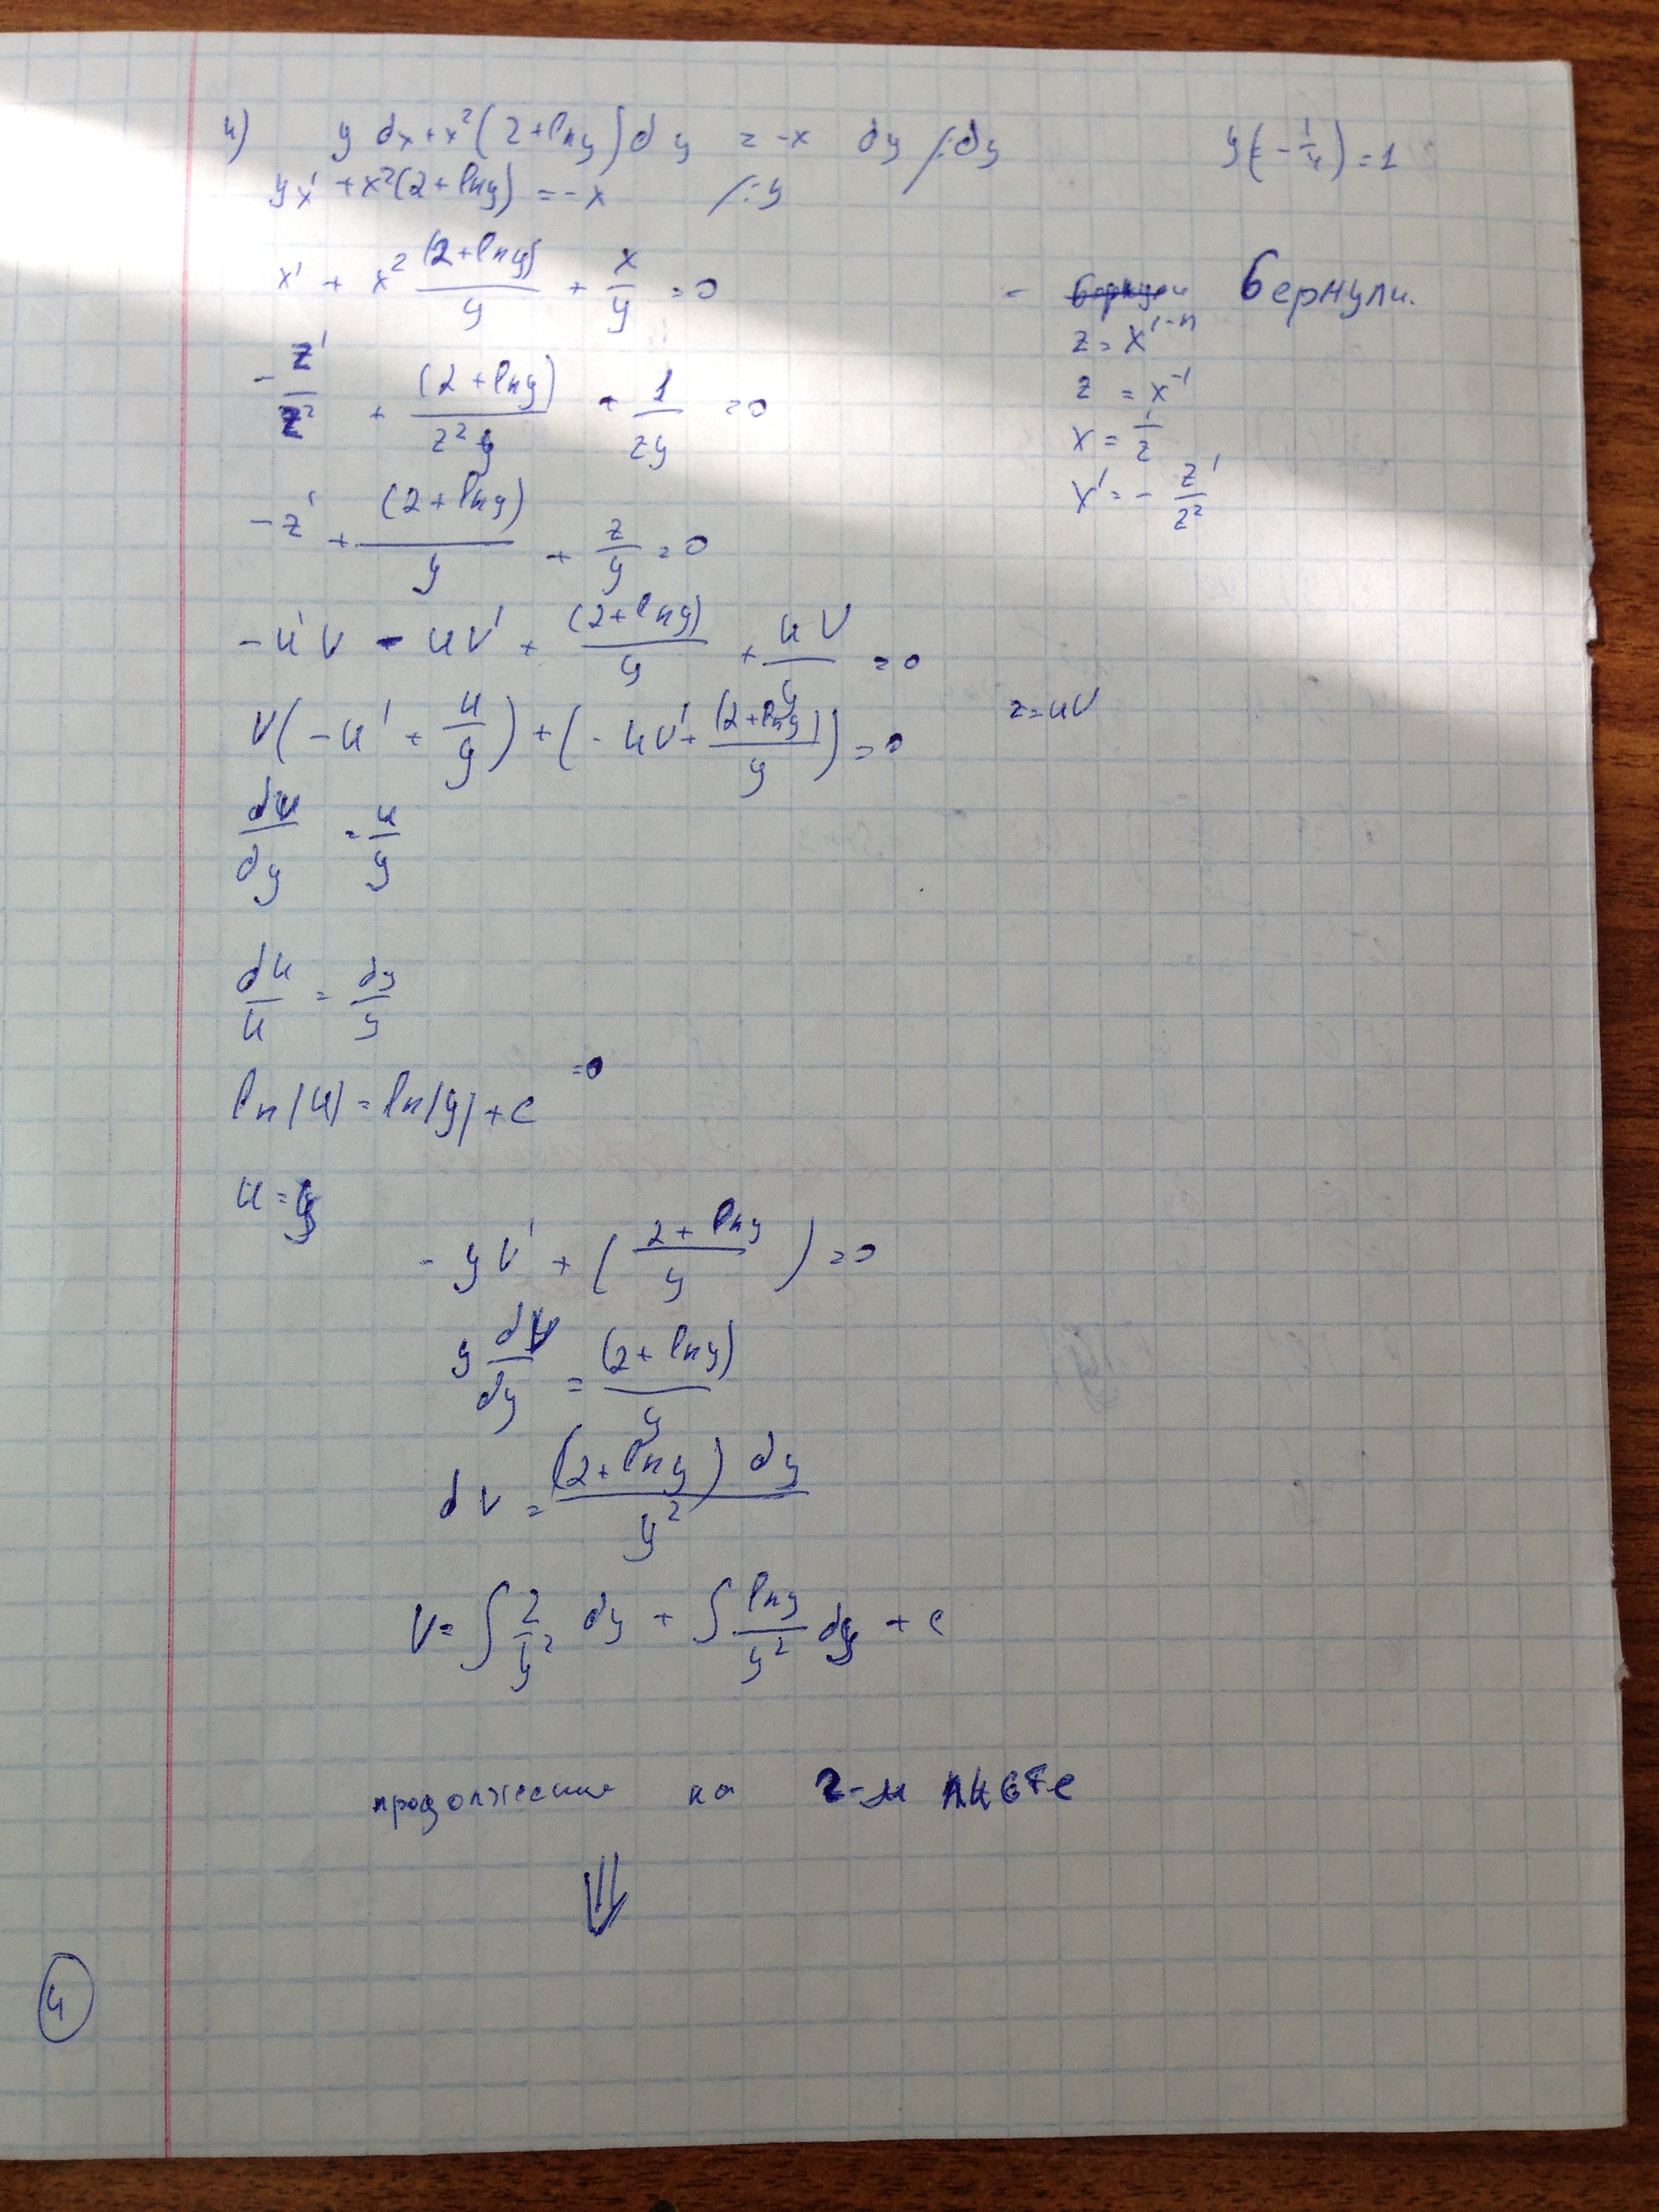 4) y dx + x²(2+lny)dy = -x dy /:dy y(-1/4)=1
yx' + x²(2+lny) = -x /:y
x' + x² (2+lny)/y + x/y = 0 - Бернули.
z = x^(1-n)
-z'/z² + (2+lny)/(z²y) + 1/(zy) = 0 z = x⁻¹
x = 1/z
-z' + (2+lny)/y + z/y = 0 x' = -z'/z²
-u'v - uv' + (2+lny)/y + uv/y = 0
v(-u' + u/y) + (-uv' + (2+lny)/y) = 0 z=uv
du/dy = u/y
du/u = dy/y
ln|u| = ln|y| + c =0
u=y
-yv' + ((2+lny)/y) = 0
y dv/dy = (2+lny)/y
dv = (2+lny)dy/y²
v = ∫ 2/y² dy + ∫ lny/y² dy + c
продолжение на 2-м листе
⇓
4